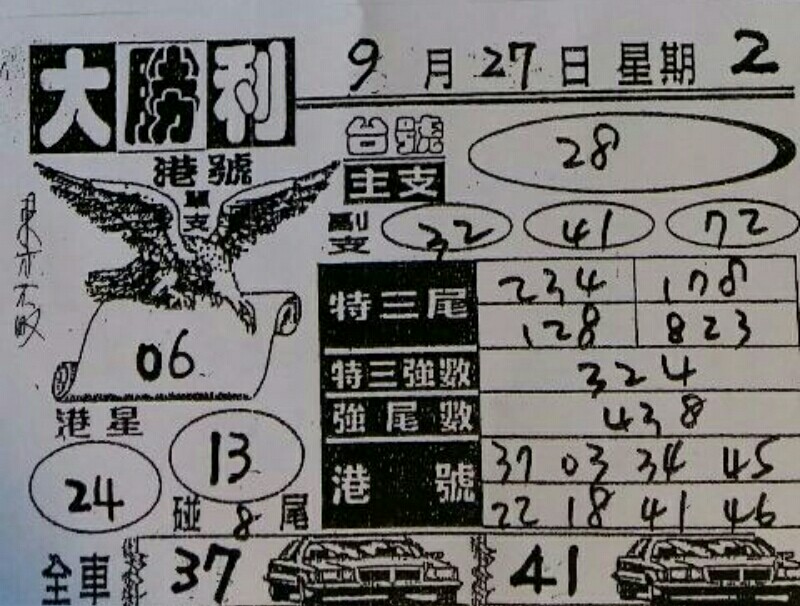 大勝利
9月27日星期2
港號
單支
06
台號
主支
28
副支 32 41 72
特三尾 234 178
128 823
特三強數 324
強尾數 438
港號 37 03 34 45
22 18 41 46
港星
24 13
碰8尾
全車 37 41